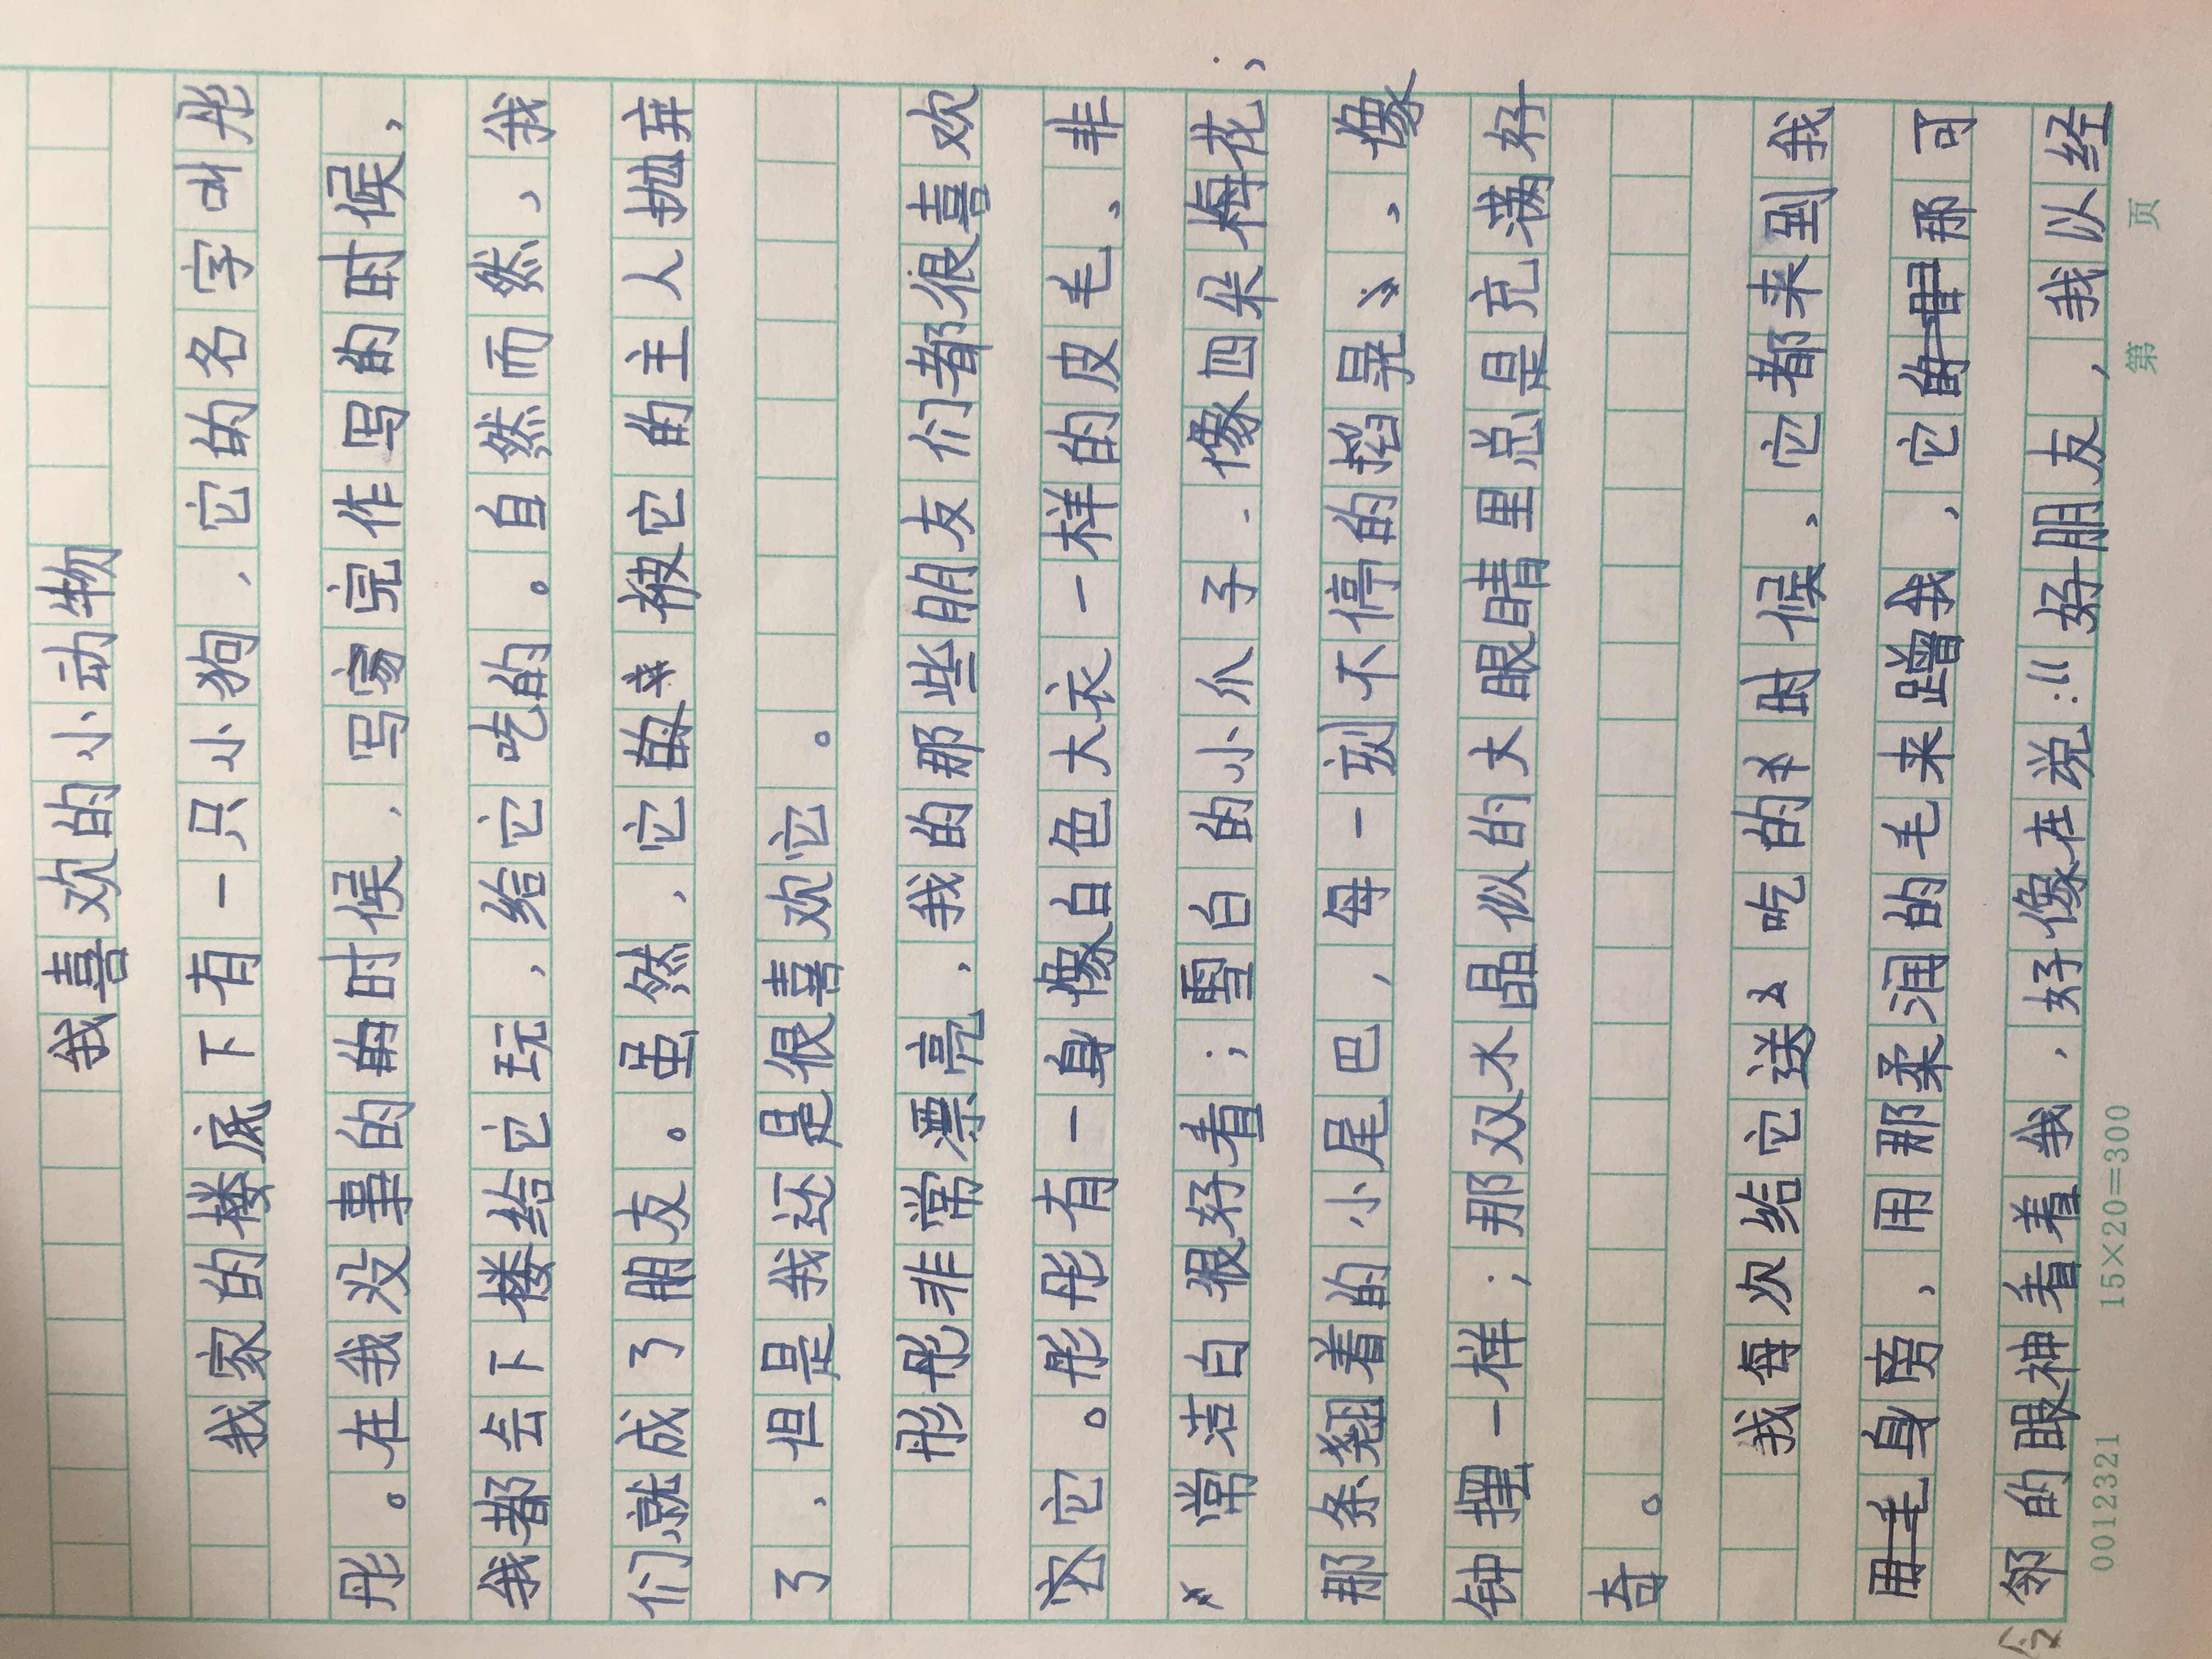 我喜欢的小动物
我家的楼底下有一只小狗，它的名字叫彤
彤。在我没事的时候，写家完作写的时候，
我都会下楼给它玩，给它吃的。自然而然，我
们就成了朋友。虽然，它的被它的主人抛弃
了，但是我还是很喜欢它。
彤彤非常漂亮，我的那些朋友们都很喜欢
它。彤彤有一身像白色大衣一样的皮毛、非
常洁白很好看；雪白的小爪子，像四朵梅花；
那条翘着的小尾巴，每一刻不停的摇晃，像
钟摆一样；那双水晶似的大眼睛里总是充满好
奇。
我每次给它送吃的时候，它都来到我
身旁，用那柔润的毛来蹭我，它那可
邻的眼神看着我，好像在说：“好朋友，我以经
0012321 15×20=300 第 页